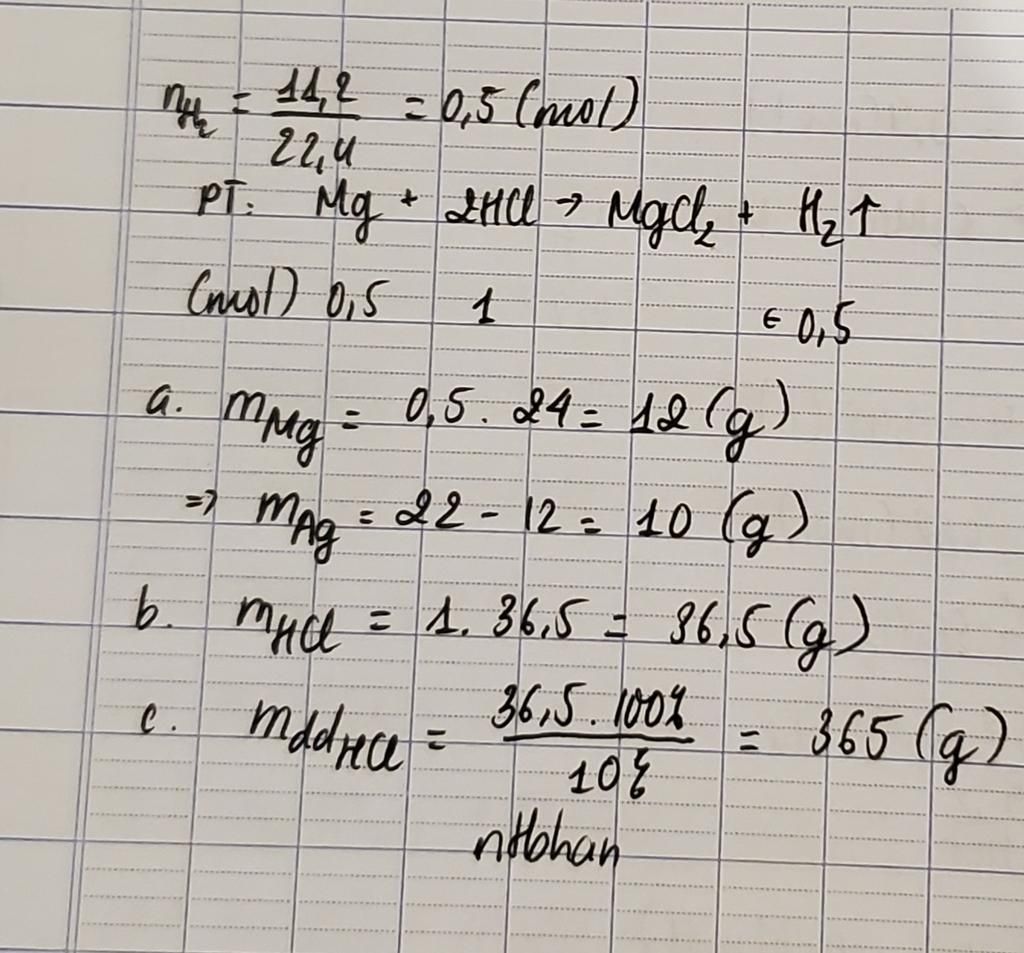 nH₂ = 11,2/22,4 = 0,5 (mol)
PT: Mg + 2HCl → MgCl₂ + H₂↑
(mol) 0,5 1 ← 0,5
a. mMg = 0,5 . 24 = 12 (g)
=> mAg = 22 - 12 = 10 (g)
b. mHCl = 1. 36,5 = 36,5 (g)
c. mddHCl = 36,5 . 100%/10% = 365 (g)